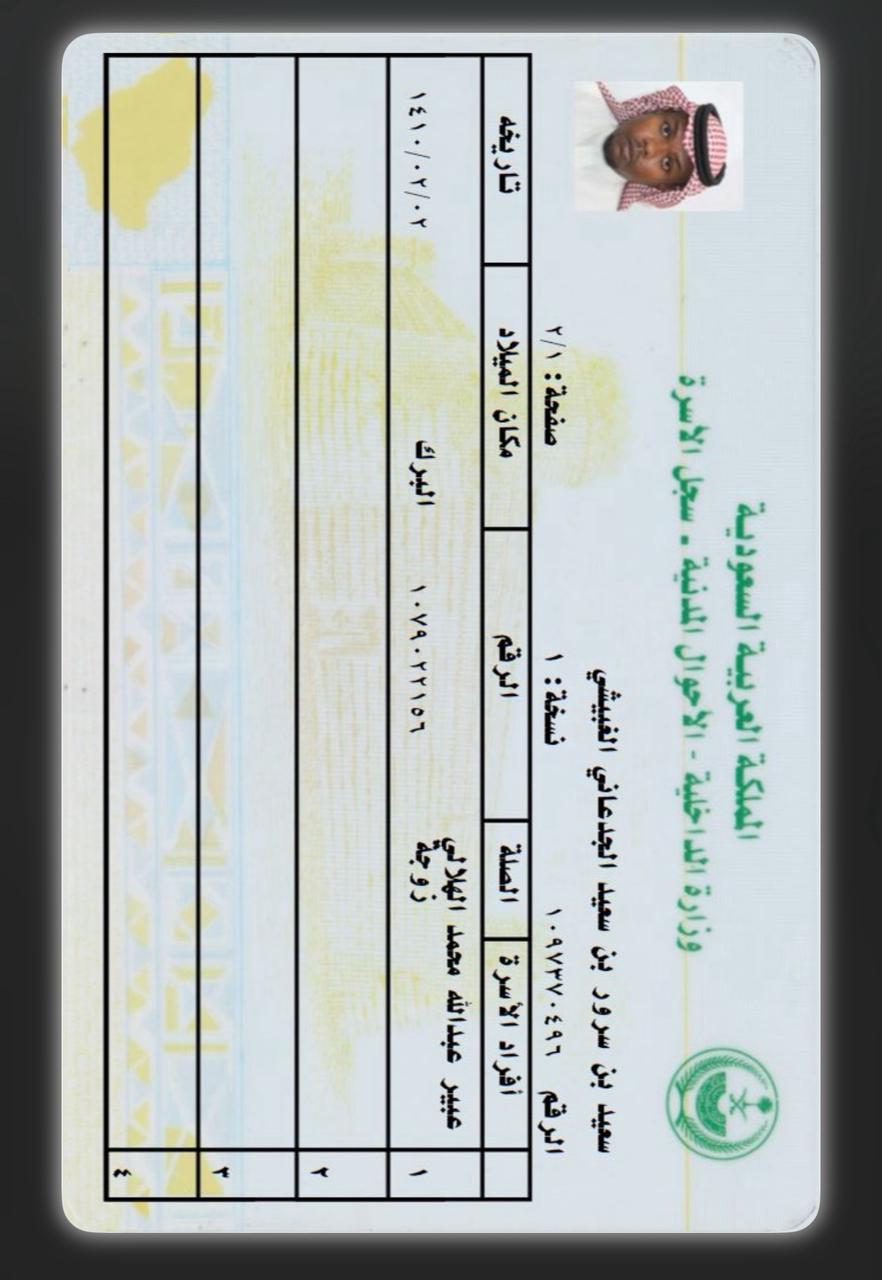 المملكة العربية السعودية
وزارة الداخلية - الأحوال المدنية - سجل الأسرة
سعيد بن سرور بن سعيد الجدعاني الغبيشي
الرقم ١٠٩٧٣٧٠٤٩٦ نسخة: ١ صفحة: ٢/١
أفراد الأسرة الصلة الرقم مكان الميلاد تاريخه
١ عبير عبدالله محمد الهلالي
زوجة ١٠٧٩٠٢٢١٥٦ البرك ١٤١٠/٠٢/٠٢
٢
٣
٤